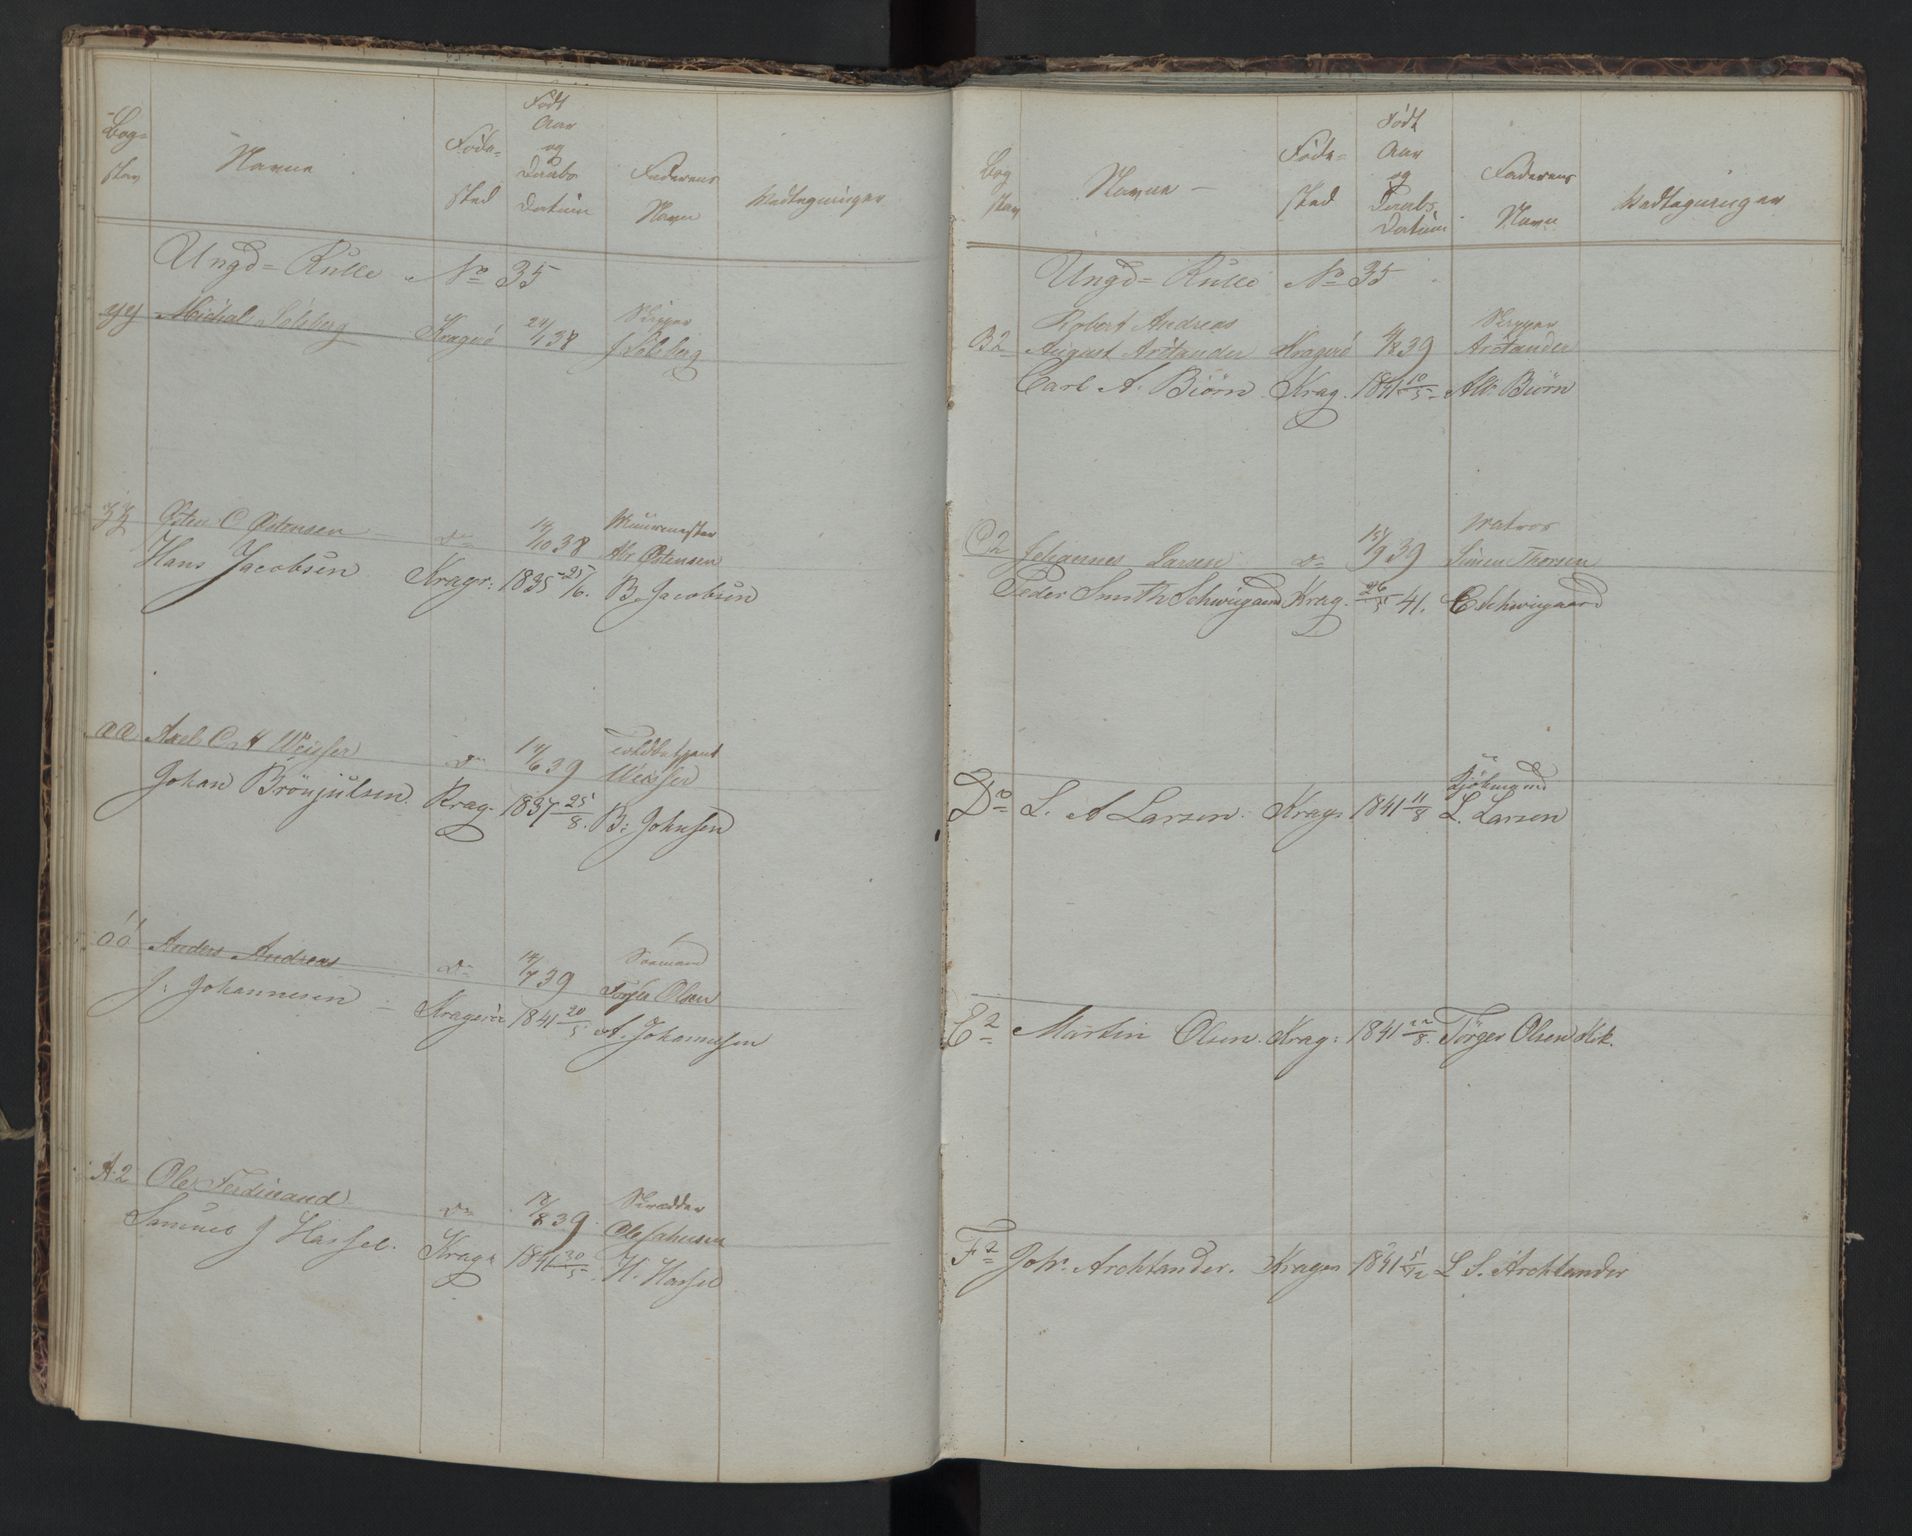 Bog=
stav
Navne
Føde=
sted
Født
Aar
og
Daabs
Datum
Faderens
Navn
Paategninger
Ungd=Rulle No 35
yy Michal Solberg Kragerö 24/1 38 Skipper
J Solberg
zz Østen C Østensen do 14/10 38 Muurmester
Abr Østensen
Hans Jacobsen Kragr: 1835 25/6. B. Jacobsen
aa Axel C M Weisser do 14/6 39 Toldbetjent
Weisser
Johan Brönjulsen Krag. 1837 25/8. B: Johnsen
öö Anders Andreas do 14/7 39 Sømand
Torger Olsen
J: Johannesen Kragerö 1841 20/5 A. Johannesen
A2 Ole Ferdinand do 17/8 39 Skrædder
Ole Johnsen
Samuel J Hassel. Krag. 1841 30/5. H. Hassel
Bog
stav
Navne
Føde=
sted
Født
Aar
og
Daabs
Datum
Faderens
Navn
Paategninger
Ungd=Rulle No 35
Robert Andreas Skipper
B2 August Arötander Kragerö 4/8 39 Arötander
Carl A. Biörn Krag. 1841 10/5 Alb: Biörn
Matros
C2 Johannes Larsen do 15/9 39 Simen Thorsen
Peder Smith Schwigaard Krag. 26/5 41. C Schwigaard
Sjömand
D2 L. A Larsen. Krag. 1841 11/8 L. Larsen
E2 Martin Olsen. Krag: 1841 22/8. Törger Olsen Kik.
F2 Johs. Archtander. Krager 1841 51/12 L S. Archtander